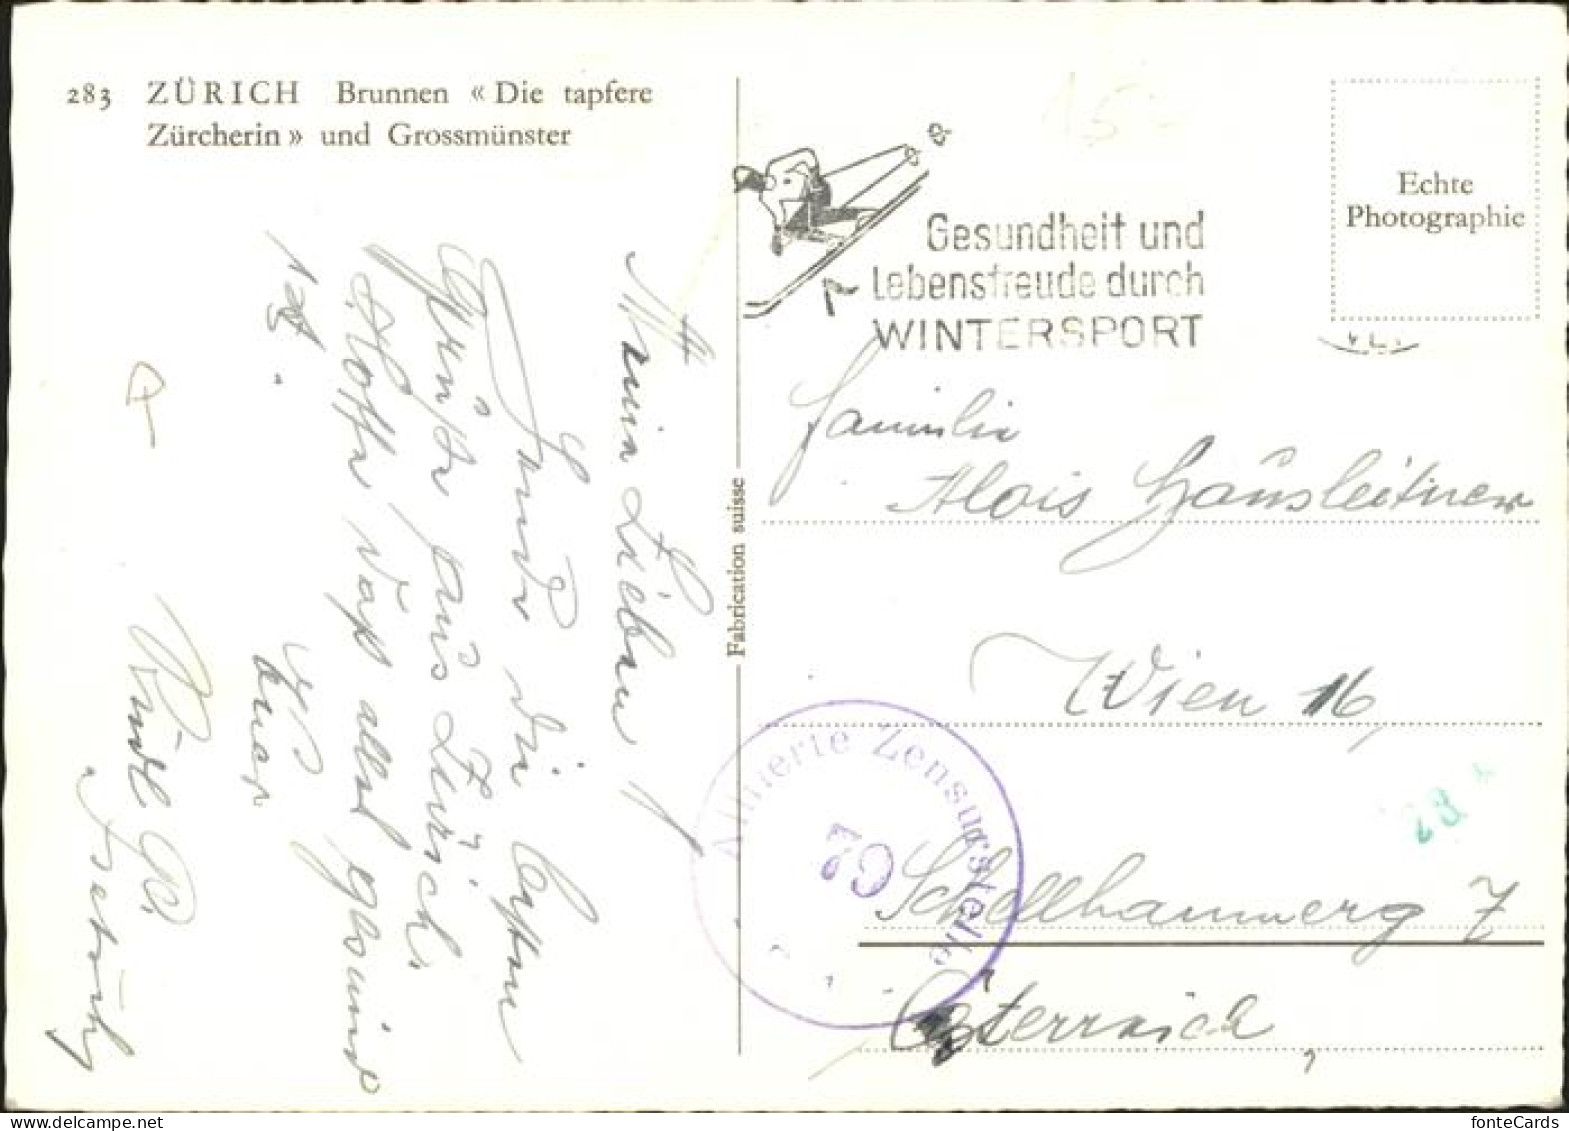 283 ZÜRICH Brunnen « Die tapfere
Zürcherin » und Grossmünster
Gesundheit und
Lebensfreude durch
WINTERSPORT
Echte
Photographie
Fabrication suisse
Familie
Alois Häusleitner
Wien 16,
Schellhammerg 7
Österreich
Alliierte Zensurstelle
28
15
Meine Lieben!
Sende die besten
Grüße aus Zürich.
Hoffe daß alle gesund
euer
Rudl
fonteCards